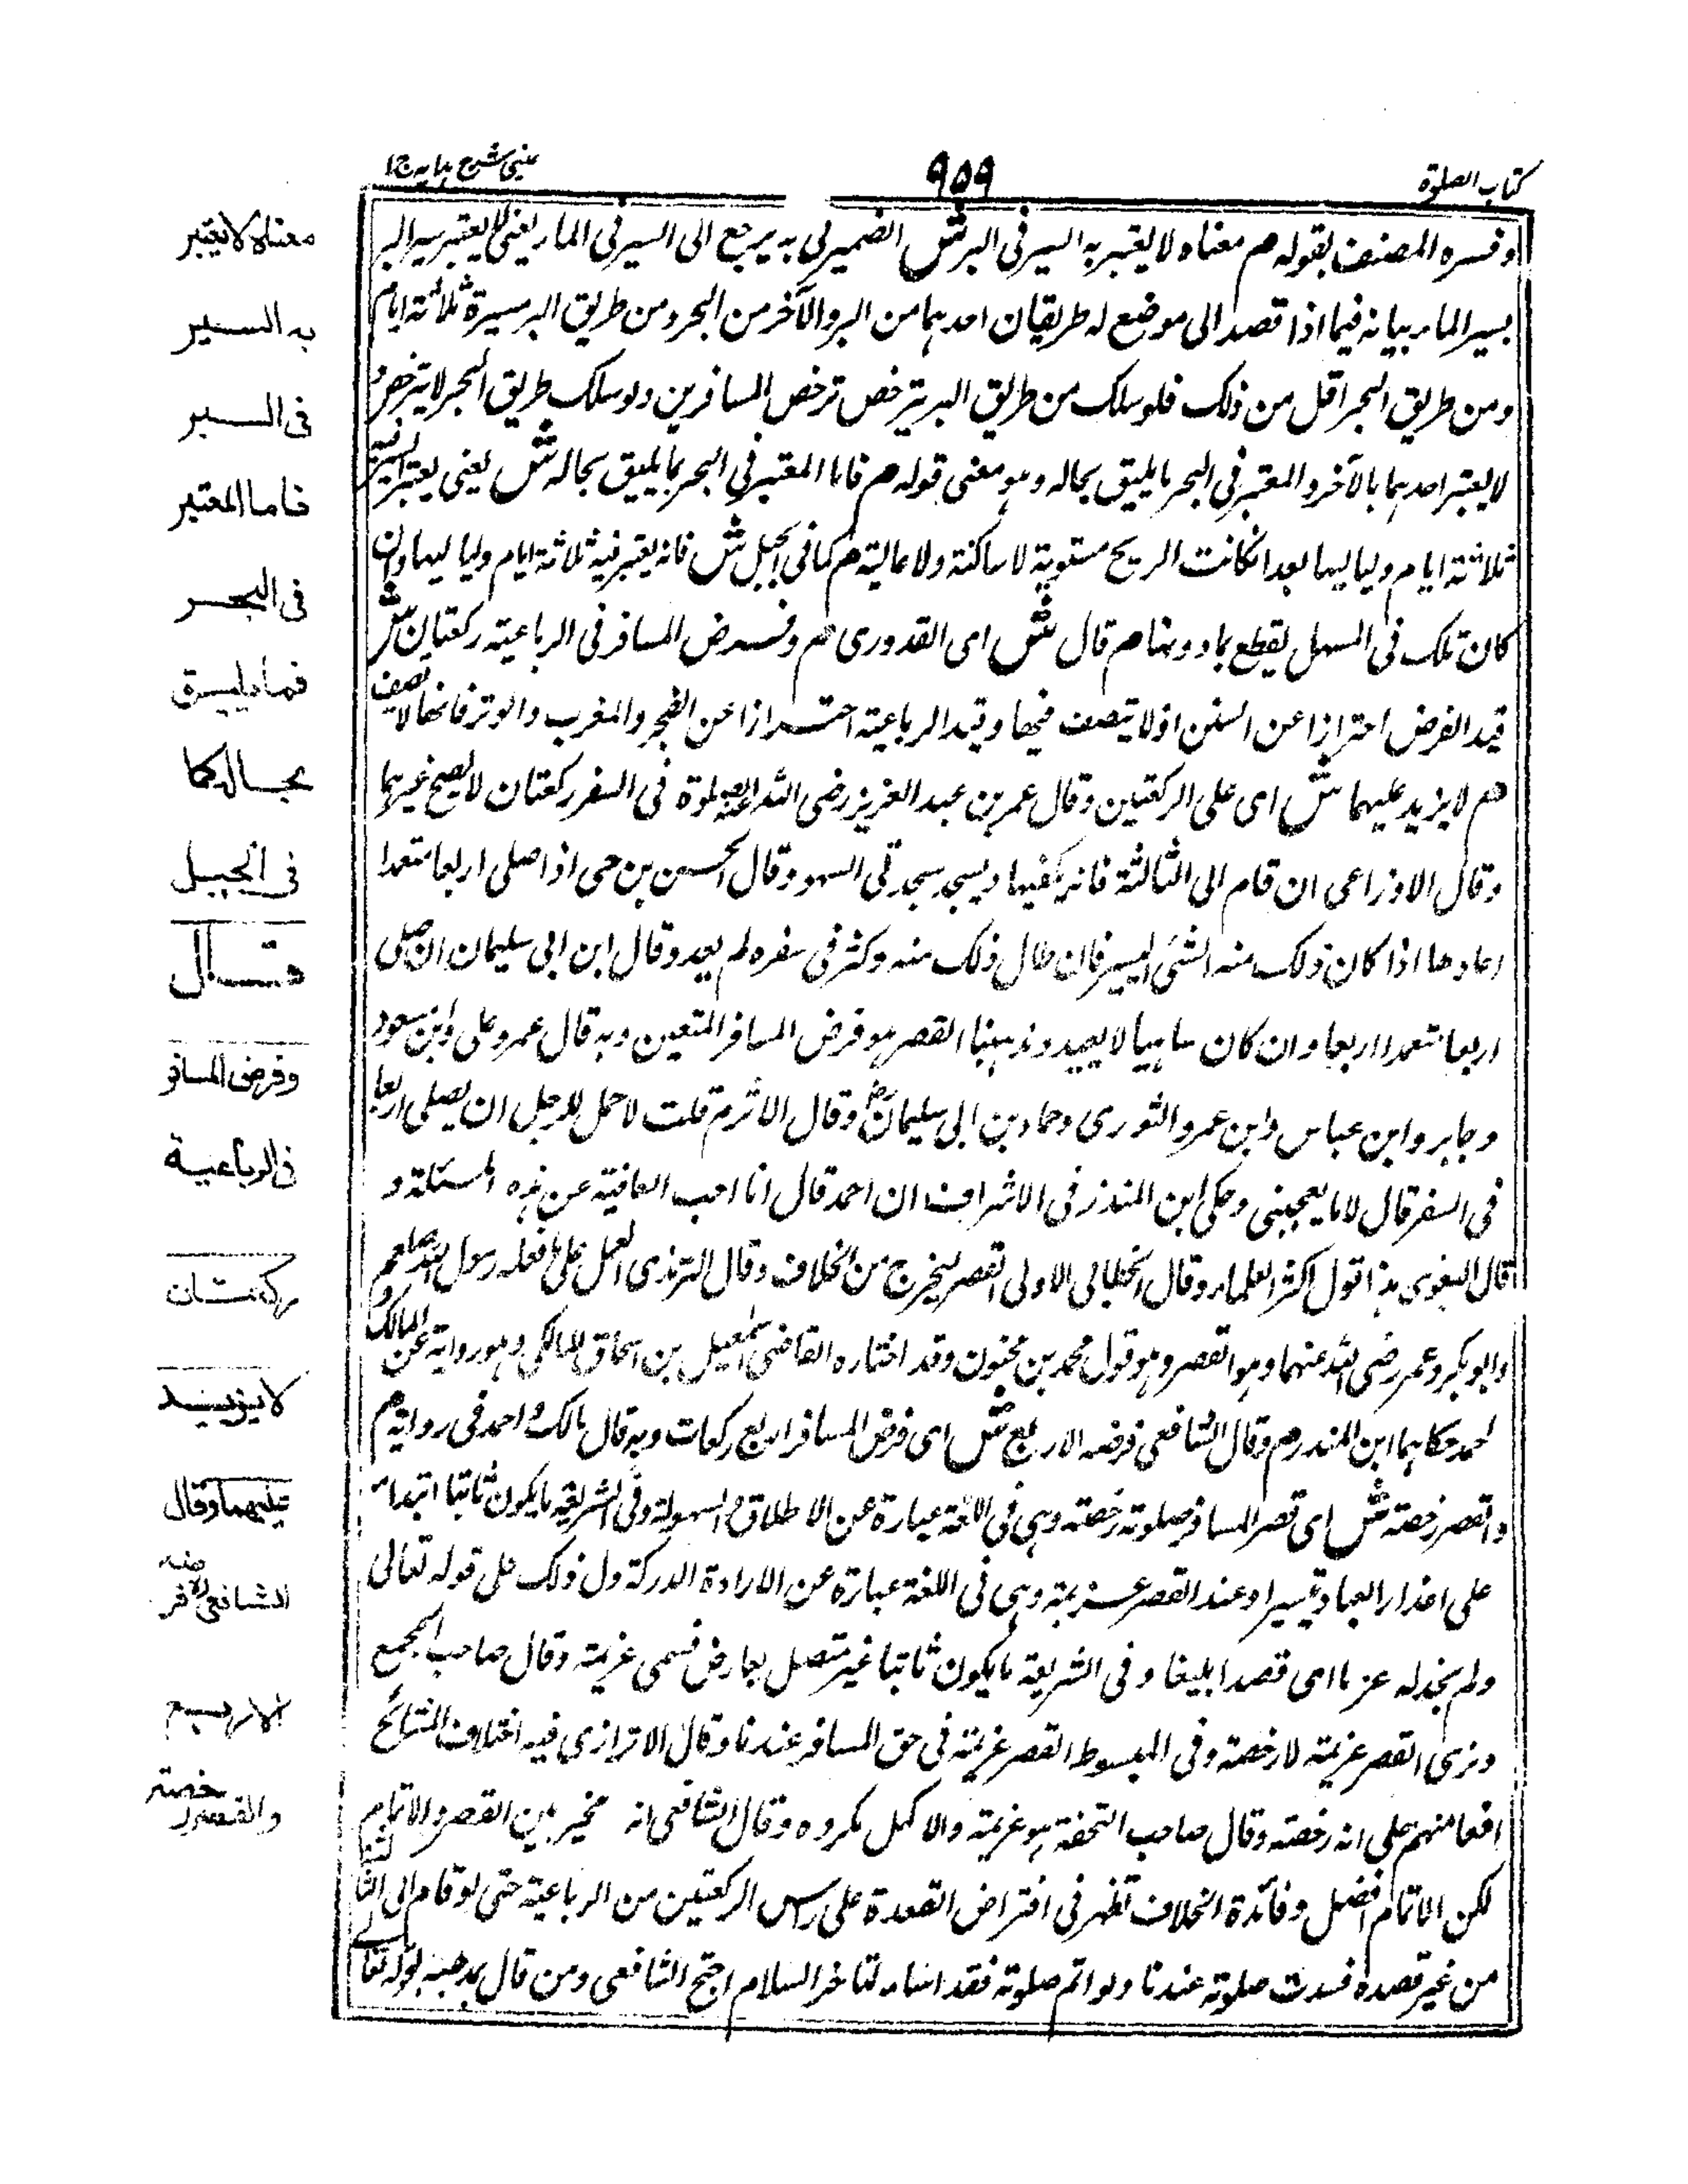 كتاب الصلوة
٩٥٩
عينى شرح هدايه ج ١
وفسره المصنف بقوله م معناه لا يعتبر به السير فى البر ش الضمير فى به يرجع الى السير فى الماء يعنى لا يعتبر سير البر
بسير الماء بيانه فيما اذا قصد الى موضع له طريقان احدهما من البر والآخر من البحر ومن طريق البر مسيرة ثلاثة ايام
ومن طريق البحر اقل من ذلك فلو سلك من طريق البر يترخص ترخص المسافرين ولو سلك طريق البحر لا يترخص و
لا يعتبر احدهما بالآخر والمعتبر فى البحر ما يليق بحاله وهو معنى قوله م فاما المعتبر فى البحر بما يليق بحاله ش يعنى يعتبر السير فيه
ثلاثة ايام ولياليها بعد ان كانت الريح مستوية لا ساكنة ولا عالية م كما فى الجبل ش فانه يعتبر فيه ثلاثة ايام ولياليها وان
كان تلك فى السهل يقطع بما دونها م قال ش اى القدورى م وفرض المسافر فى الرباعية ركعتان ش
قيد الفرض احترازا عن السنن اذ لا يتصف فيها وقيد الرباعية احترازا عن الفجر والمغرب والوتر فانها لا تصف
م لا يزيد عليهما ش اى على الركعتين وقال عمر بن عبد العزيز رضى الله عنه الصلوة فى السفر ركعتان لا يصح غيرهما
وقال الاوزاعى ان قام الى الثالثة فانه يلغيها ويسجد سجدتى السهو وقال الحسن بن حى اذا صلى اربعا متعمدا
اعادها اذا كان ذلك منه الشئ اليسير فان طال ذلك منه وكثر فى سفره لم يعد وقال ابن ابى سليمان ان صلى
اربعا متعمدا اربعا وان كان ساهيا لا يعيد ومذهبنا القصر هو فرض المسافر المتعين وبه قال عمر وعلى وابن مسعود
وجابر وابن عباس وابن عمر والثورى وحماد بن ابى سليمان رض وقال الاثرم قلت لاحمد للرجل ان يصلى اربعا
فى السفر قال لا ما يعجبنى وحكى ابن المنذر فى الاشراف ان احمد قال انا احب العافية عن هذه المسئلة و
قال البغوى هذا قول اكثر العلماء وقال الخطابى الاولى القصر ليخرج من الخلاف وقال الترمذى العمل على ما فعله رسول الله صلعم
وابو بكر وعمر رضى الله عنهما وهو القصر وهو قول محمد بن سحنون وقد اختاره القاضى اسمعيل بن اسحاق المالكى وهو رواية عن مالك و
احمد حكاهما ابن المنذر م وقال الشافعى فرضه الاربع ش اى فرض المسافر اربع ركعات وبه قال مالك واحمد فى رواية م
والقصر رخصة ش اى قصر المسافر صلوته رخصته وهى فى اللغة عبارة عن الاطلاق والسهولة وفى الشريعة ما يكون ثابتا ابتداء
على اعذار العباد تيسيرا وعند القصر عزيمة وهى فى اللغة عبارة عن الارادة المدركة دل ذلك على قوله تعالى
ولم نجد له عزما اى قصدا بليغا وفى الشريعة ما يكون ثابتا غير متصل بعارض فسمى عزيمة وقال صاحب المجمع
ونرى القصر عزيمة لا رخصة وفى المبسوط القصر عزيمة فى حق المسافر عندنا وقال الاترازى فيه اختلاف المشائخ
افعا منهم على انه رخصته وقال صاحب التحفة هو عزيمة والاكمل مكروه وقال الشافعى انه مخير بين القصر والاتمام
لكن الاتمام افضل وفائدة الخلاف تظهر فى افتراض القعدة على راس الركعتين من الرباعية حتى لو قام الى الثالثة
من غير قصده فسدت صلوته عندنا ولو اتم صلوته فقد اساء لتاخر السلام احتج الشافعى ومن قال بمذهبه بقوله تعالى
معناه لا يعتبر
به السير
فى السير
فاما المعتبر
فى البحر
فما يليق
بحاله كما
فى الجبل
قال
وفرض المسافر
فى الرباعية
ركعتان
لا يزيد
عليهما وقال
الشافعى فرضه
الاربع
والقصر رخصة